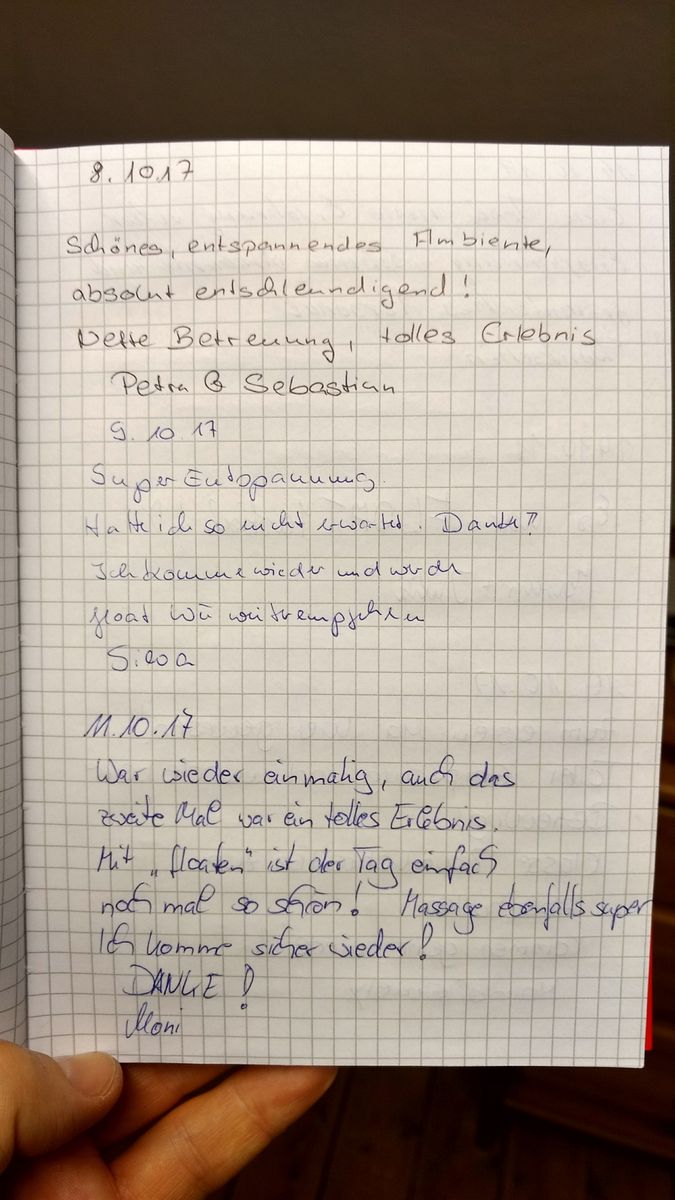 8.10.17
Schönes, entspannendes Ambiente,
absolut entschleundigend!
Nette Betreuung, tolles Erlebnis
Petra & Sebastian
9.10.17
Super Entspannung.
Hatte ich so nicht erwartet. Danke!
Ich komme wieder und werde
float weiterempfehlen
11.10.17
War wieder einmalig, auch das
zweite Mal war ein tolles Erlebnis.
Mit „floaten" ist der Tag einfach
noch mal so schön! Massage ebenfalls super
Ich komme sicher wieder!
DANKE!
Moni